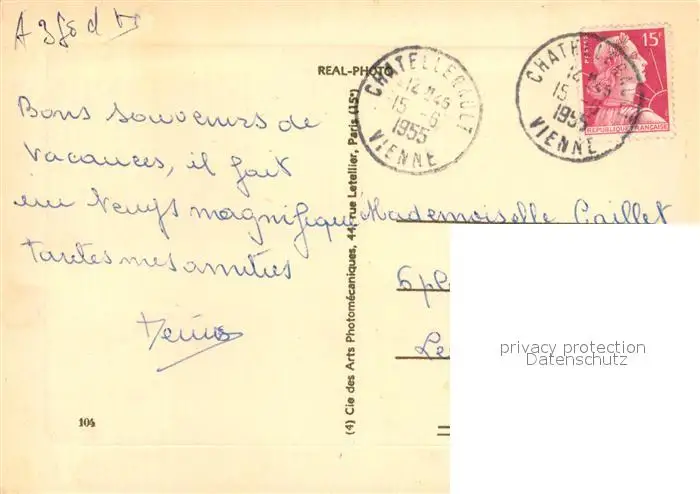 REAL-PHOTO
Bons souvenirs de
vacances, il fait
un temps magnifique
toutes mes amitiés
Denis
104
(4) Cie des Arts Photomécaniques, 44, rue Letellier, Paris (15e)
CHATELLERAULT
12 H45
15 -6
1955
VIENNE
CHATELLERAULT
12 H45
15 -6
1955
VIENNE
POSTES
15F
REPUBLIQUE FRANÇAISE
Mademoiselle Caillet
6 pl
Le
privacy protection
Datenschutz